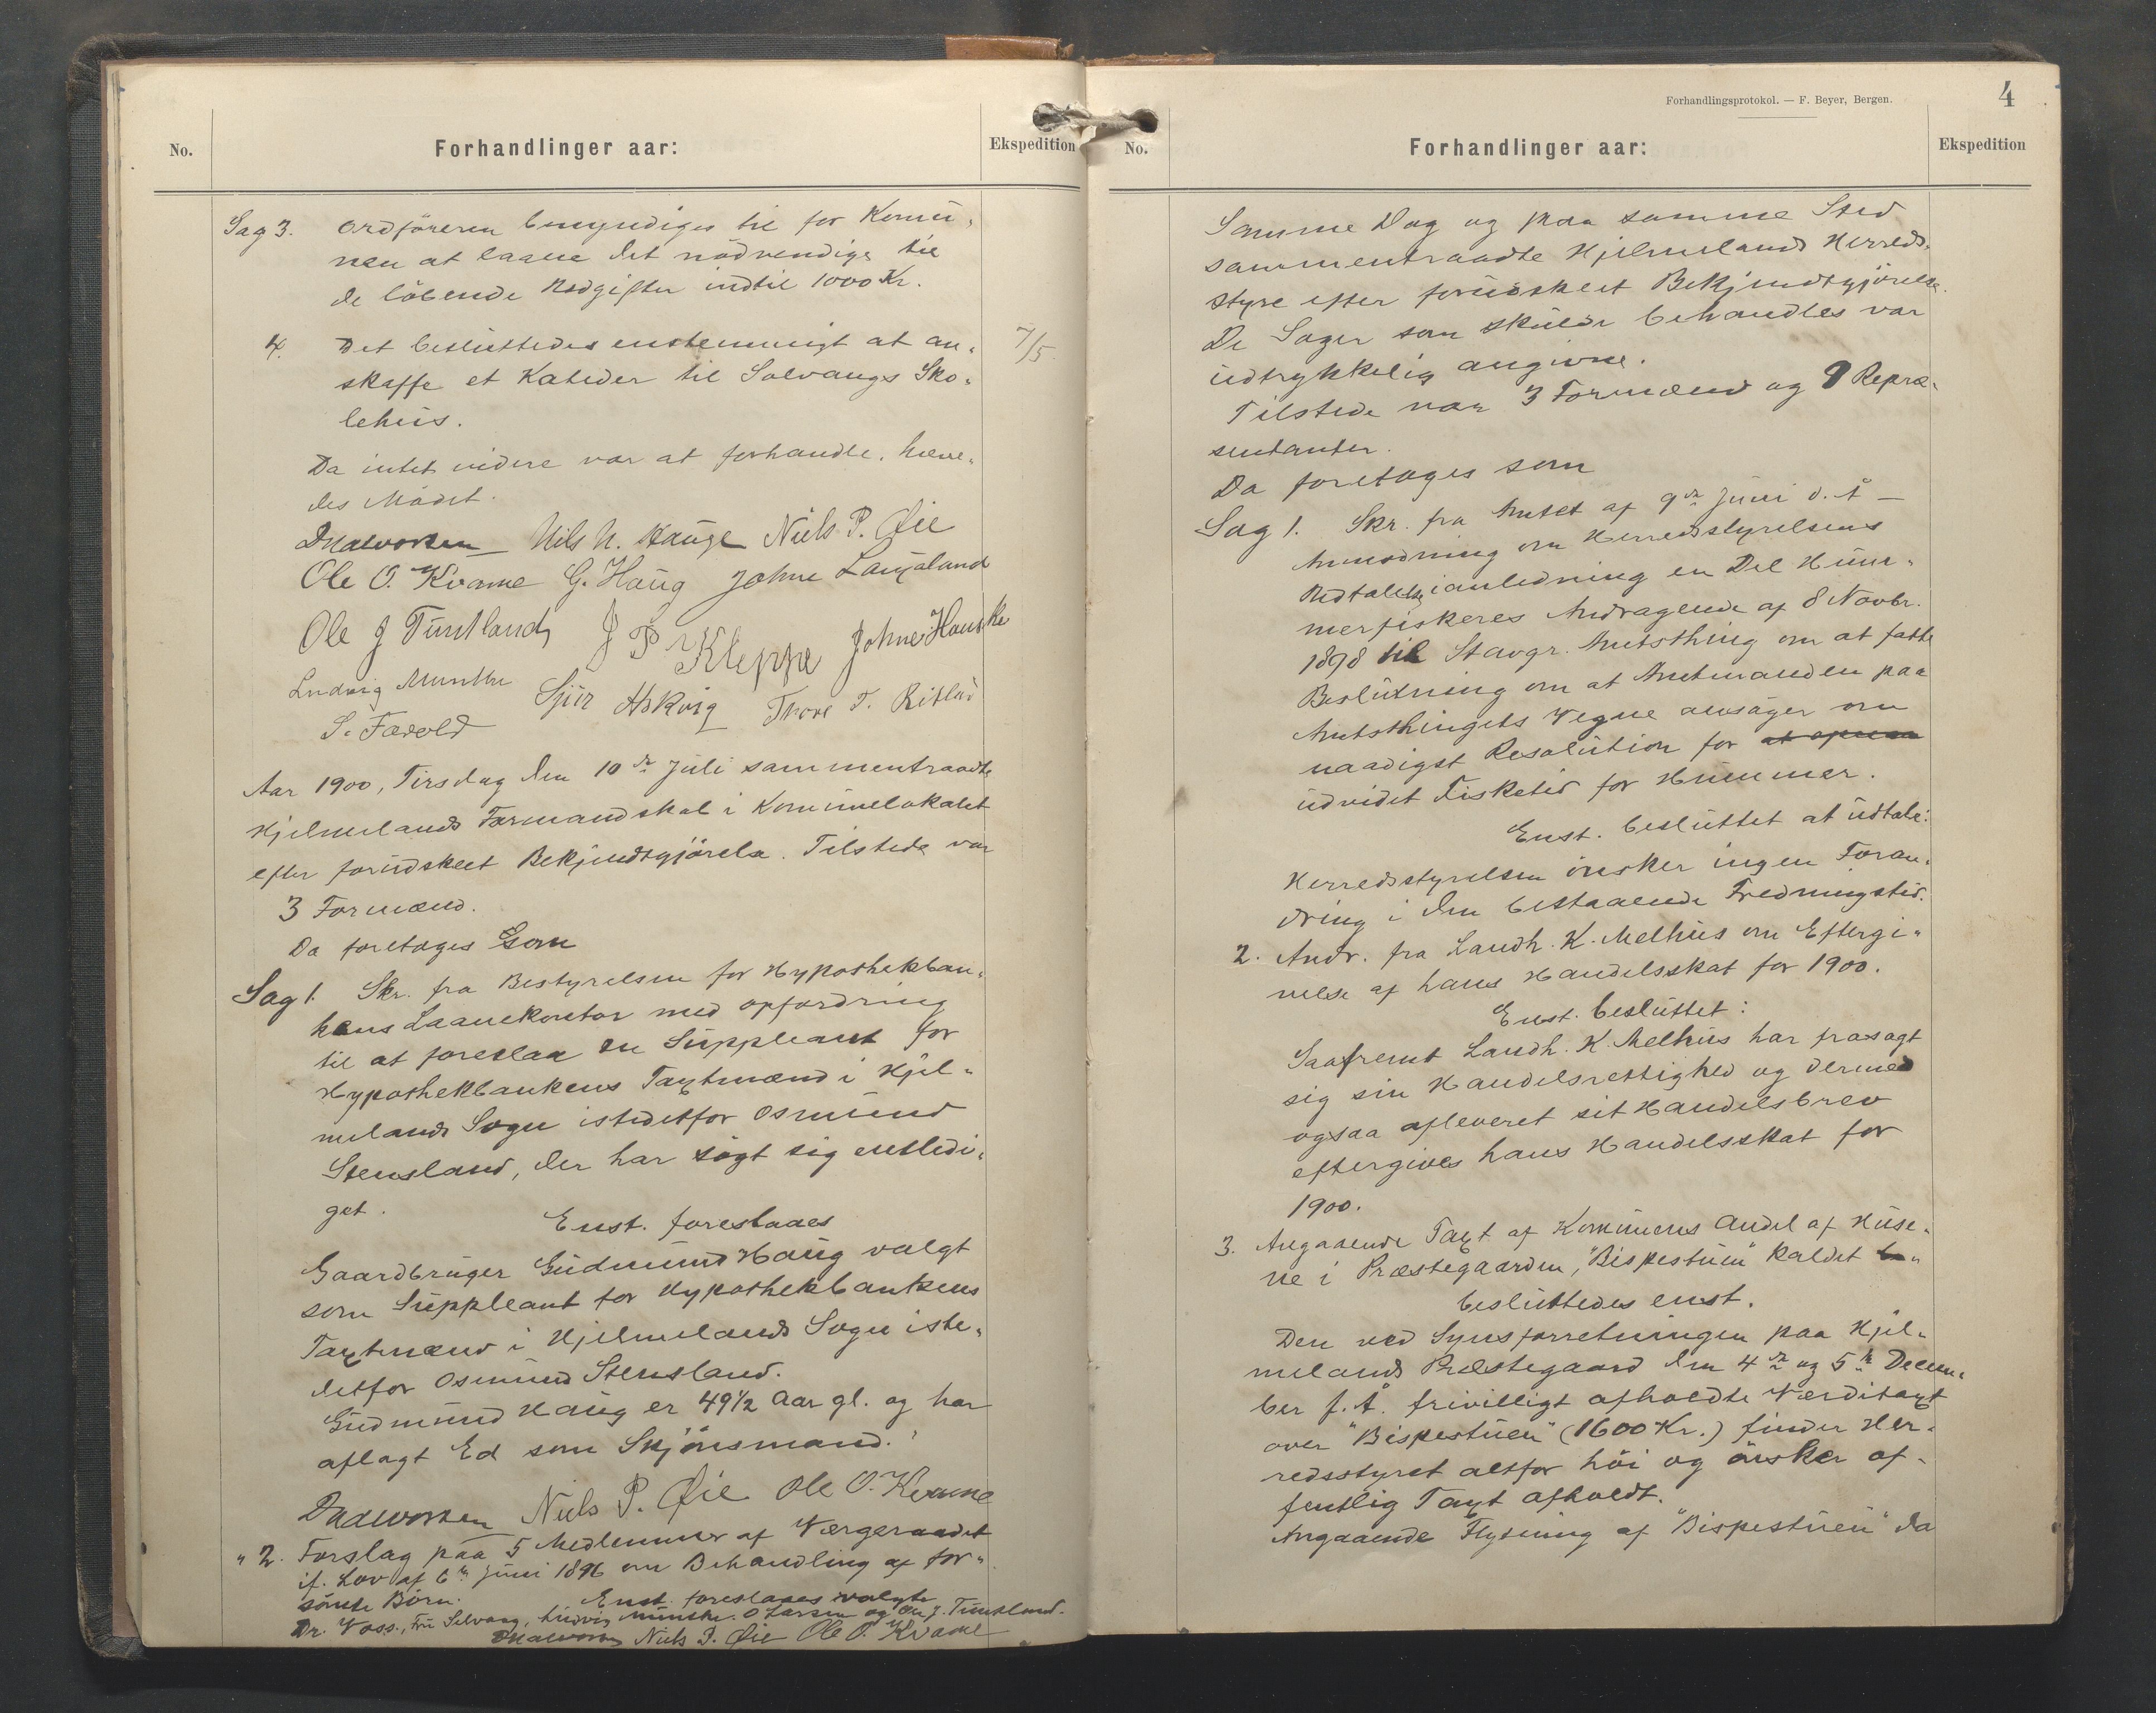 No.
Forhandlinger aar:
Ekspedition
Sag 3. Ordföreren bemyndiges til for Komü-
nen at laane det nödvendige til
de löbende Udgifter indtil 1000 Kr.
4. Det beslüttedes enstemmigt at an- 7/5.
skaffe et Katheder til Solvangs Sko-
lehüs.
Da intet videre var at forhandle, hæve-
des Mödet.
Nils N. Haüge Niels P. Øie
Ole O. Kvame G. Haüg Johne Laügaland
Ole J Tüntland J P Kleppe Johnes Hauske
Ludvig Munthe Sjür Askvig Thore T. Ritland
S. Farvold
Aar 1900, Tirsdag den 10de Jüli sammentraadte
Hjelmelands Formandskab i Komünelokalet
efter forüdskeet Bekjendtgjörelse. Tilstede var
3 Formænd.
Da foretoges som
Sag 1. Skr. fra Bestyrelsen for Hypothekban-
kens Laanekontor med opfordring
til at foreslaa en Süppleant for
Hypothekbankens Taxtmænd i Hjel-
melands Sogn istedetfor Osmünd
Stensland, der har sögt sig entledi-
get.
Enst. foreslaaes
Gaardbrüger Güdmünd Haüg valgt
som Süppleant for Hypothekbankens
Taxtmænd i Hjelmelands Sogn iste-
detfor Osmünd Stensland.
Güdmünd Haüg er 49½ Aar gl. og har
aflagt Ed som Skjönsmand.
Niels P. Øie Ole O. Kvame
" 2. Forslag paa 5 Medlemmer af Værgeraadet
if. Lov af 6te Jüni 1896 om Behandling af for-
sömte Börn. Enst. foreslaaes valgte
Dr. Voss, Frü Selvaag, Lüdvig Münthe, O Larsen og Ole J. Tüntland.
Niels P. Øie Ole O. Kvame
Forhandlingsprotokol. — F. Beyer, Bergen.
4
No.
Forhandlinger aar:
Ekspedition
Samme Dag og paa samme Sted
sammentraadte Hjelmelands Herreds-
styre efter forüdskeet Bekjendtgjörelse.
De Sager som skülde behandles var
üdtrykkelig angivne.
Tilstede var 3 Formænd og 9 Repræ-
sentanter.
Da foretoges som
Sag 1. Skr. fra Amtet af 9de Jüni d. Å —
Anmodning om Herredsstyrelsens
Udtalelse i anledning en Del Hüm-
merfiskeres Andragende af 8 Novbr.
1898 til Stavgr. Amtsthing om at fatte
Beslütning om at Amtmanden paa
Amtsthingets Vegne ansöger om
naadigst Resolütion for
üdvidet Fisketid for Hümmer.
Enst. beslüttet at üdtale:
Herredsstyrelsen önsker ingen Foran-
dring i den bestaaende Fredningstid.
2. Andr. fra Landh. K. Melhüs om Eftergi-
velse af hans Handelsskat for 1900.
Enst. beslüttet:
Saafremt Landh. K. Melhüs har frasagt
sig sin Handelsrettighed og dermed
ogsaa afleveret sit Handelsbrev
eftergives hans Handelsskat for
1900.
3. Angaaende Taxt af Komünens Andel af Hüse-
ne i Præstegaarden, "Bispestüen" kaldet
beslüttedes enst.
Den ved Synsforretningen paa Hjel-
melands Præstegaard den 4de og 5te Decem-
ber f. Å. frivilligt afholdte Værditaxt
over "Bispestüen" (1600 Kr.) finder Her-
redsstyret altfor höi og önsker of-
fentlig Taxt afholdt.
Angaaende Flytning af "Bispestüen" da